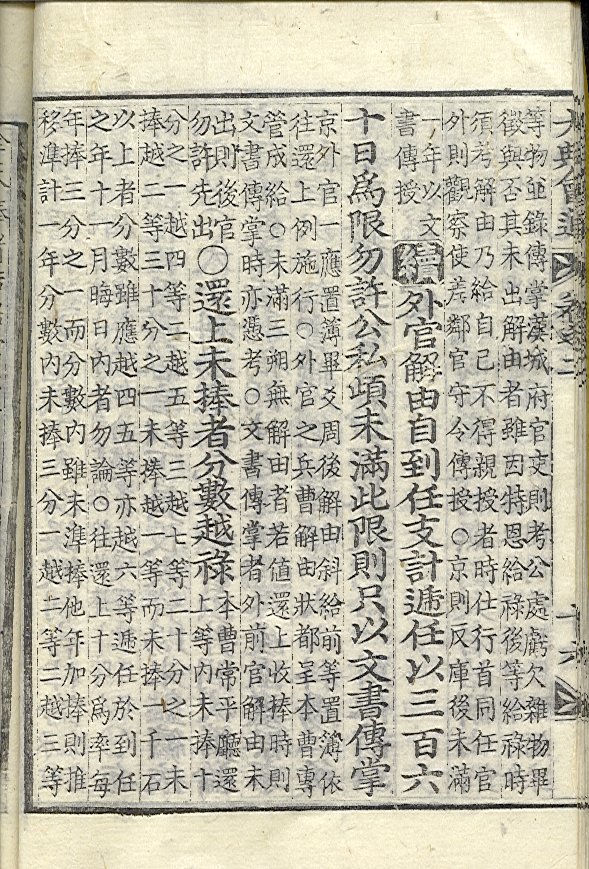 大典會通 卷之二 十六
等物並錄傳掌漢城府官交則考公處虧欠雜物畢
徵與否其未出解由者雖因特恩給祿後等給祿時
須考解由乃給自己不得親授者時仕行首同任官
外則觀察使差鄰官守令傳授○京則反庫後未滿
一年以文
書傳授
續外官解由自到任支計遞任以三百六
十日爲限勿許公私頉未滿此限則只以文書傳掌
京外官一應置簿畢爻周後解由斜給前等置簿依
往還上例施行○外官之兵曹解由狀都呈本曹專
管成給○未滿三朔無解由者若値還上收捧時則
文書傳掌時亦憑考○文書傳掌者外前官解由未
出則後官
勿許先出
○還上未捧者分數越祿
本曹常平廳還
上等內未捧十
分之一越四等二越五等三越七等二十分之一未
捧越二等三十分之一未捧越一等而未捧一千石
以上者分數雖應越四五等亦越六等遞任於到任
之年十一月晦日內者勿論○往還上十分爲率每
年捧三分之一而分數內雖未準捧他年加捧則推
移準計一年分數內未捧三分一越二等二越三等